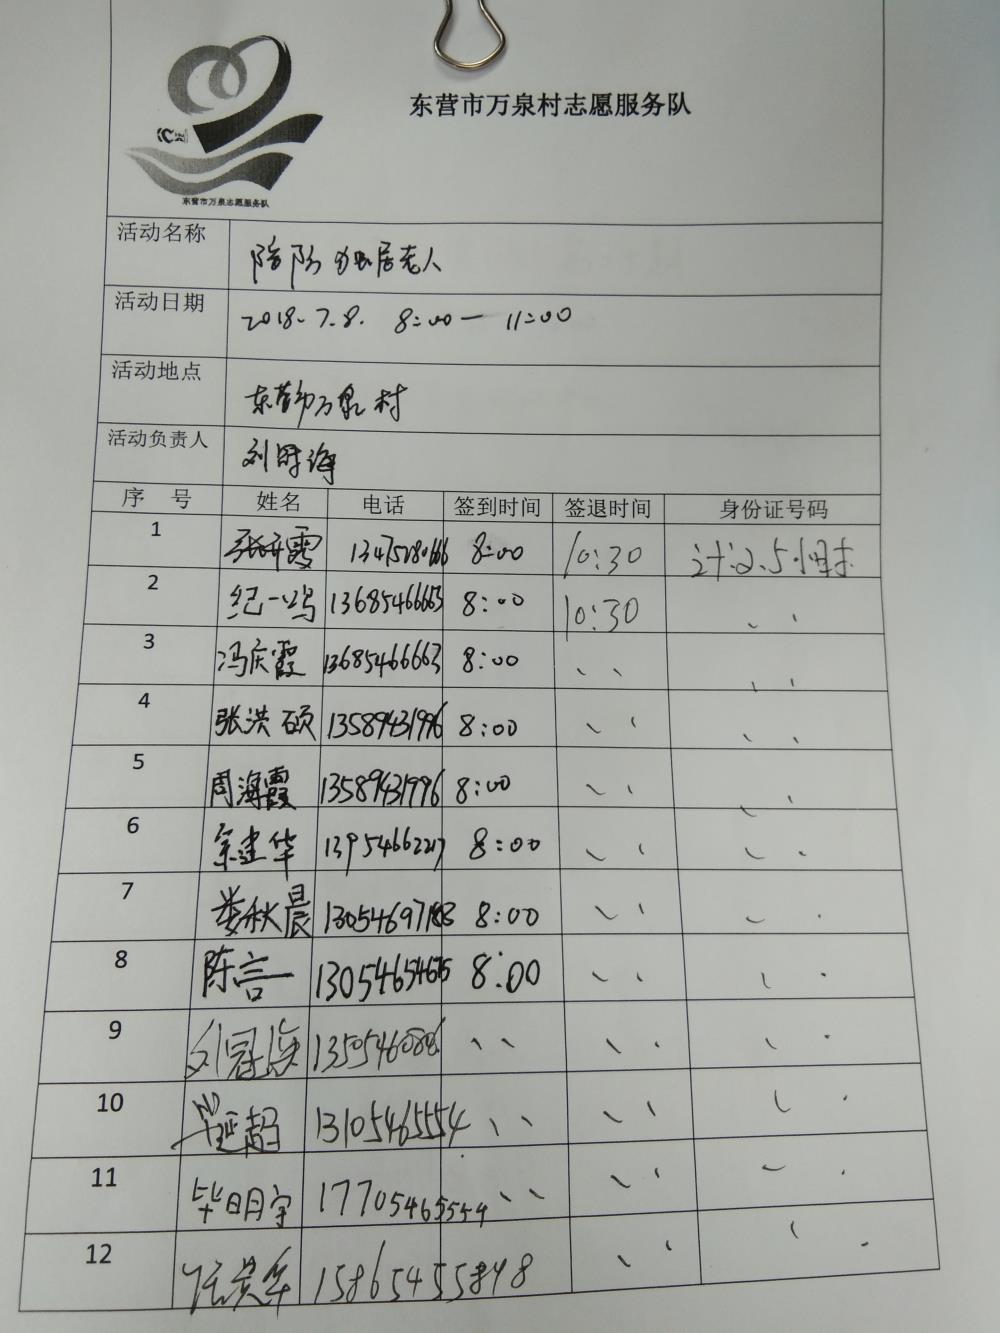 东营市万泉村志愿服务队
东营市万泉志愿服务队
活动名称 陪 独居老人
活动日期 2018.7.8. 8:00— 11:00
活动地点 东营市万泉村
活动负责人 刘 海
序 号 姓名 电话 签到时间 签退时间 身份证号码
1 张 霞 8:00 10:30 计2.5小时
2 纪一鸣 13685466663 8:00 10:30 、 、
3 冯庆霞 13685466663 8:00 、 、 、 、
4 张洪硕 13589431996 8:00 、 、 、 、
5 周海霞 13589431996 8:00 、 、 、 、
6 建华 13954662217 8:00 、 、 、 、
7 娄秋晨 13054697183 8:00 、 、 、 、
8 陈言 8:00 、 、 、 、
9 刘冠 、 、 、 、 、 、
10 毕延超 13105465554 、 、 、 、 、 、
11 毕明宇 17705465554 、 、 、 、 、 、
12 15865455898 、 、 、 、